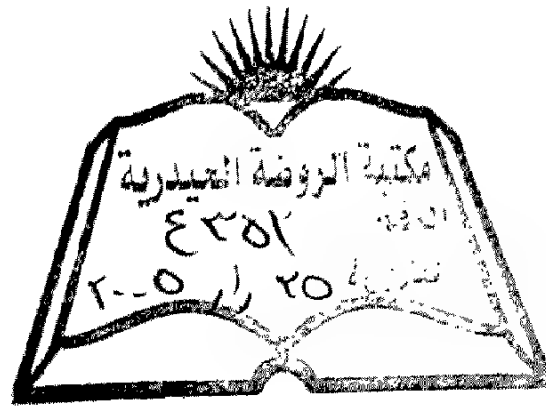 مكتبة الروضة الحيدرية
الرقم ٤٣٥٢
٢٥ ٢٠٠٥